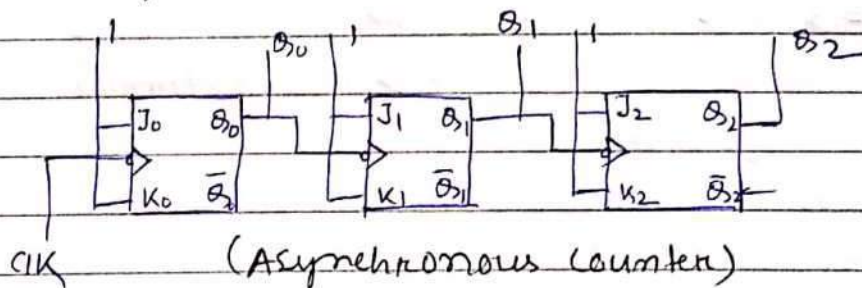 1 Q0 1 Q1 1 Q2
J0 Q0 J1 Q1 J2 Q2
K0 Q̅0 K1 Q̅1 K2 Q̅2
CLK (Asynchronous Counter)